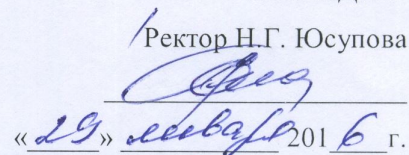 Ректор Н.Г. Юсупова
«29» января 2016 г.